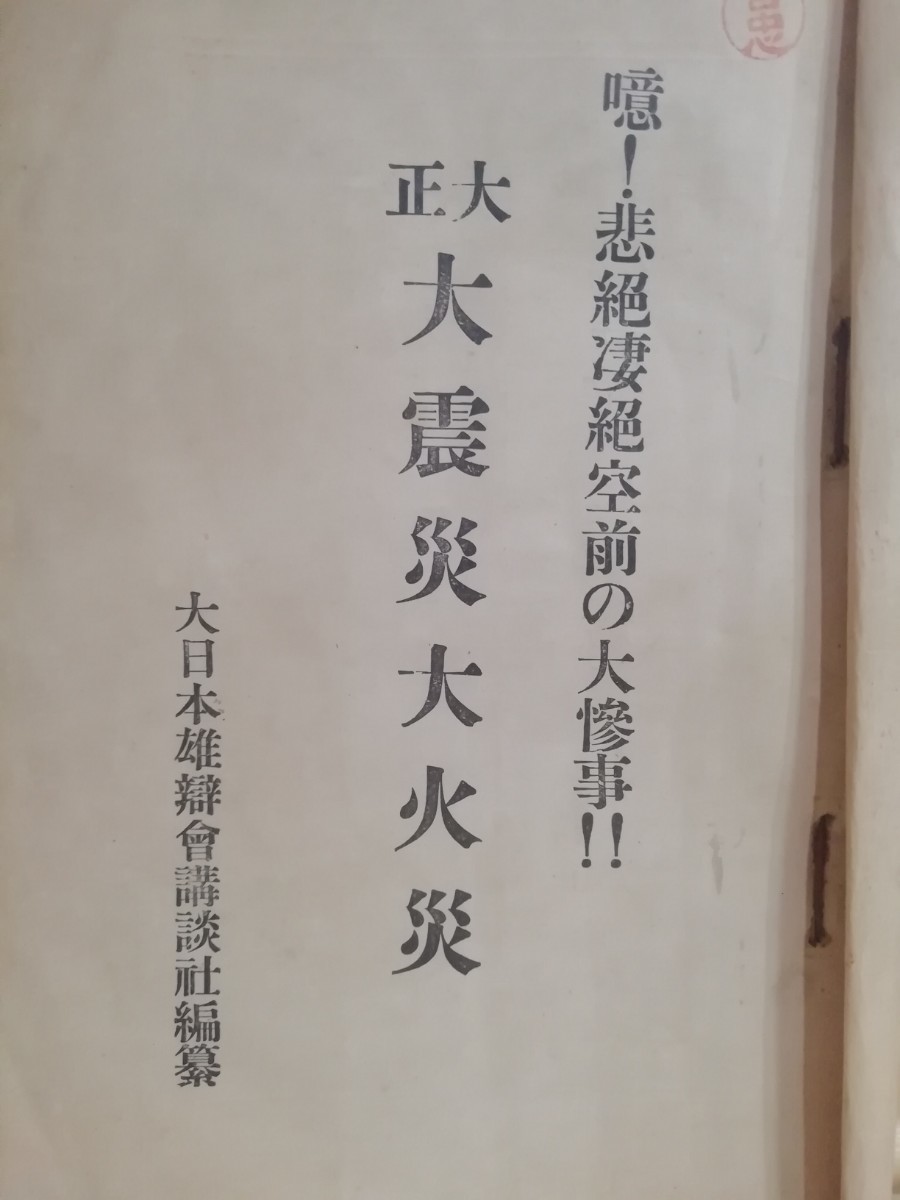 噫！悲絕凄絕空前の大慘事!!
大正
大震災大火災
大日本雄辯會講談社編纂